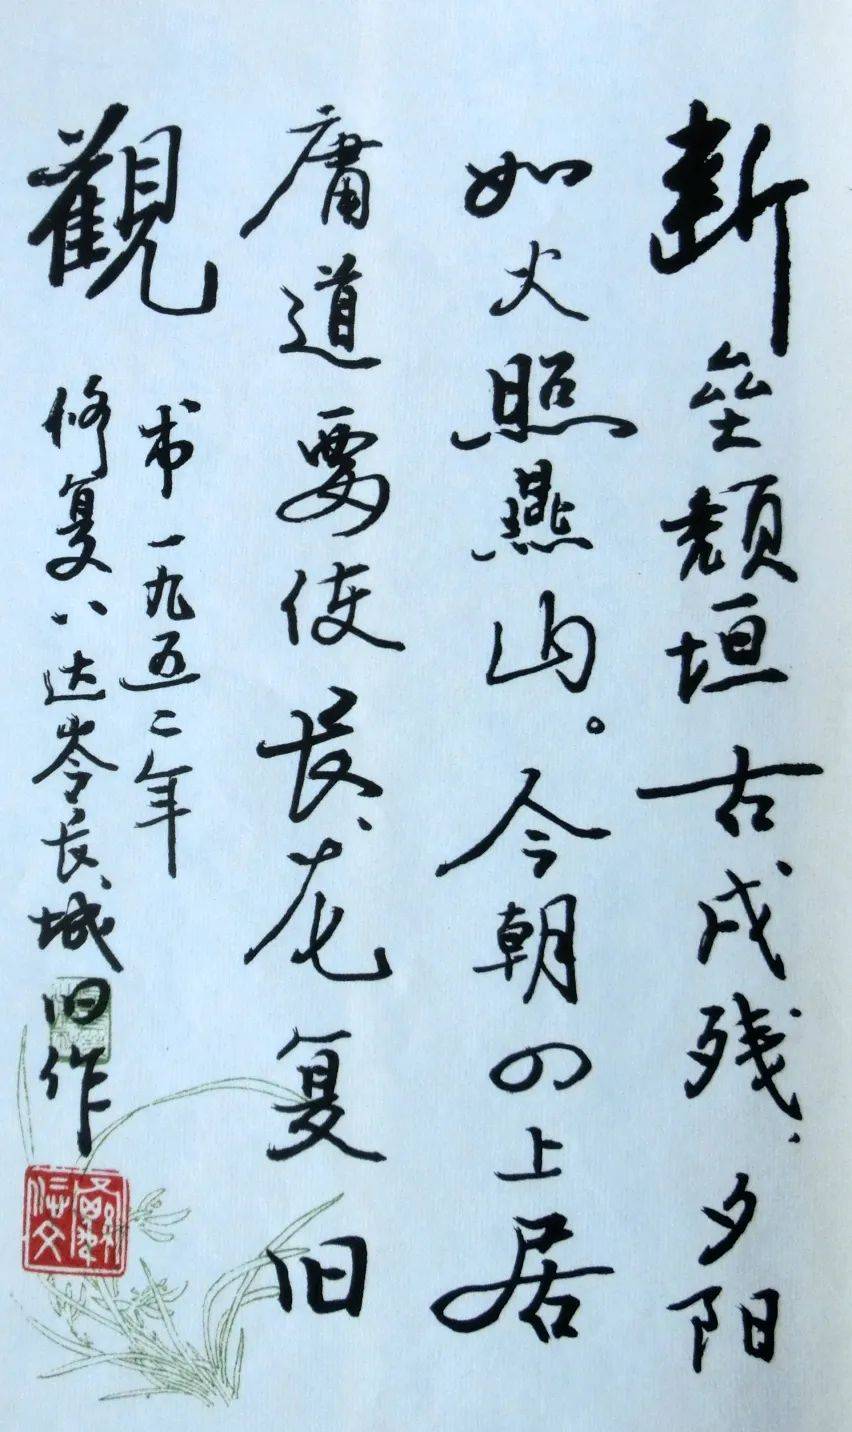 断垒頹垣古戍残、夕阳
如火照燕山。今朝四上居
庸道要使长龙复旧
觀
书一九五二年
修复八达岺长城旧作